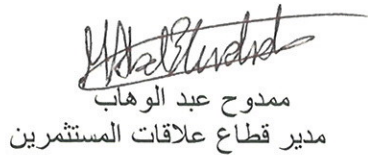 ممدوح عبد الوهاب
مدير قطاع علاقات المستثمرين